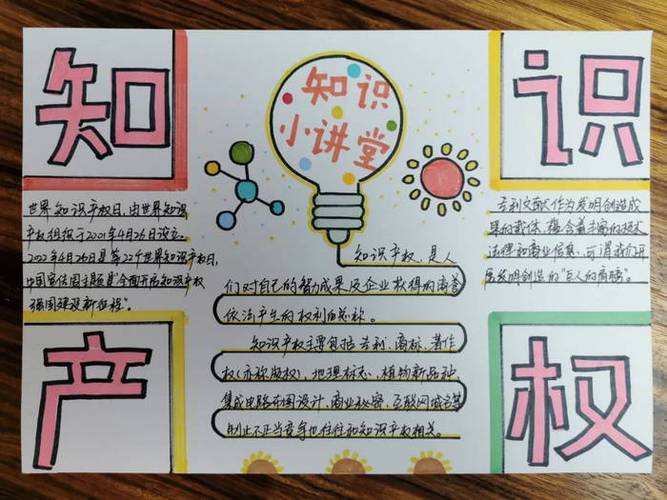 知
识
产
权
知识
小讲堂
世界知识产权日，由世界知识
产权组织于2001年4月26日设立。
2022年4月26日是第22个世界知识产权日，
中国宣传周主题是"全面开启知识产权
强国建设新征程"。
知识产权，是人
们对自己的智力成果及企业获得的商誉
依法产生的权利的总称。
知识产权主要包括专利、商标、著作
权（亦称版权）、地理标志、植物新品种
集成电路布图设计、商业秘密、互联网域名等
制止不正当竞争也往往和知识产权相关。
专利文献作为发明创造成
果的载体，蕴含着丰富的技术
法律和商业信息，可谓我们开
展发明创造的"巨人的肩膀"。